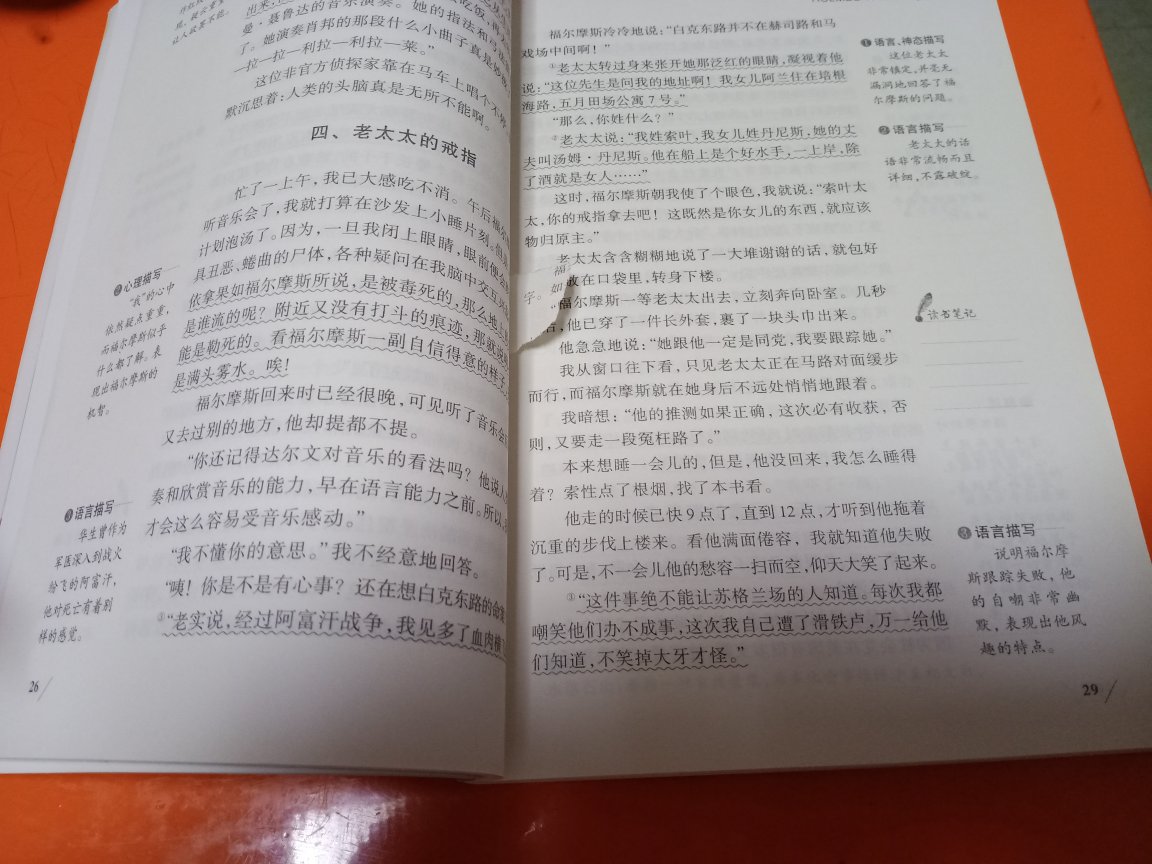 现，疑云重重，
让人欲罢不能。
曼·聂鲁达的音乐演奏。她的指法和弓法
了。她演奏肖邦的那段什么小曲子真是妙极
—拉—拉—利拉—利拉—莱。”
这位非官方侦探家靠在马车上唱个不停，
默沉思着：人类的头脑真是无所不能啊。
四、老太太的戒指
忙了一上午，我已大感吃不消。午后福尔
听音乐会了，我就打算在沙发上小睡片刻。但是
计划泡汤了。因为，一旦我闭上眼睛，眼前便会
具丑恶、蜷曲的尸体，各种疑问在我脑中交互
依拿果如福尔摩斯所说，是被毒死的，那么地上
是谁流的呢？附近又没有打斗的痕迹，那就说
能是勒死的。看福尔摩斯一副自信得意的样子，
是满头雾水。唉！
福尔摩斯回来时已经很晚，可见听了音乐会
又去过别的地方，他却提都不提。
“你还记得达尔文对音乐的看法吗？他说人
奏和欣赏音乐的能力，早在语言能力之前。所以，
才会这么容易受音乐感动。”
“我不懂你的意思。”我不经意地回答。
“咦！你是不是有心事？还在想白克东路的命案
③“老实说，经过阿富汗战争，我见多了血肉横
②心理描写
“我”的心中
依然疑点重重，
而福尔摩斯似乎
什么都了解。表
现出福尔摩斯的
机智。
③语言描写
华生曾作为
军医深入到战火
纷飞的阿富汗，
他对死亡有着别
样的感觉。
26
福
字。如
福尔摩斯冷冷地说：“白克东路并不在赫司路和马
戏场中间啊！”
①老太太转过身来张开她那泛红的眼睛，凝视着他
说：“这位先生是问我的地址啊！我女儿阿兰住在培根
海路，五月田场公寓7号。”
“那么，你姓什么？”
②老太太说：“我姓索叶，我女儿姓丹尼斯，她的丈
夫叫汤姆·丹尼斯。他在船上是个好水手，一上岸，除
了酒就是女人……”
这时，福尔摩斯朝我使了个眼色，我就说：“索叶太
太，你的戒指拿去吧！这既然是你女儿的东西，就应该
物归原主。”
老太太含含糊糊地说了一大堆谢谢的话，就包好
放在口袋里，转身下楼。
福尔摩斯一等老太太出去，立刻奔向卧室。几秒
，他已穿了一件长外套，裹了一块头巾出来。
他急急地说：“她跟他一定是同党，我要跟踪她。”
我从窗口往下看，只见老太太正在马路对面缓步
而行，而福尔摩斯就在她身后不远处悄悄地跟着。
我暗想：“他的推测如果正确，这次必有收获，否
则，又要走一段冤枉路了。”
本来想睡一会儿的，但是，他没回来，我怎么睡得
着？索性点了根烟，找了本书看。
他走的时候已快9点了，直到12点，才听到他拖着
沉重的步伐上楼来。看他满面倦容，我就知道他失败
了。可是，不一会儿他的愁容一扫而空，仰天大笑了起来。
③“这件事绝不能让苏格兰场的人知道。每次我都
嘲笑他们办不成事，这次我自己遭了滑铁卢，万一给他
们知道，不笑掉大牙才怪。”
①语言、神态描写
这位老太太
非常镇定，并毫无
漏洞地回答了福
尔摩斯的问题。
②语言描写
老太太的话
语非常流畅而且
详细，不露破绽。
读书笔记
③语言描写
说明福尔摩
斯跟踪失败，他
的自嘲非常幽
默，表现出他风
趣的特点。
29